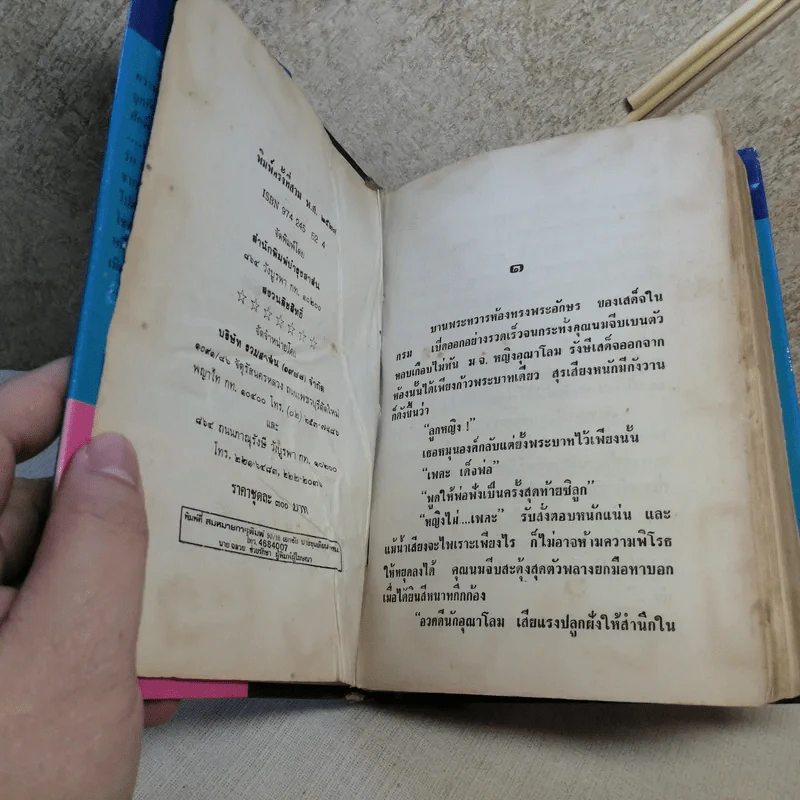 พิมพ์ครั้งที่สาม พ.ศ. ๒๕๒๗
ISBN 974 246 62 4
จัดพิมพ์โดย
สำนักพิมพ์บำรุงสาส์น
๘๖๔ วังบูรพา กท. ๑๐๒๐๐
สงวนลิขสิทธิ์
☆☆☆☆☆☆☆
จัดจำหน่ายโดย
บริษัท รวมสาส์น (๑๙๗๗) จำกัด
๑๐๙๑/๔๖ จตุรัสนครหลวง ถนนเพชรบุรีตัดใหม่
พญาไท กท. ๑๐๔๐๐ โทร. (๐๒) ๒๕๓-๗๔๘๖
และ
๘๖๔ ถนนภาณุรังษี วังบูรพา กท. ๑๐๒๐๐
โทร. ๒๒๑-๖๔๘๓, ๒๒๒-๒๐๓๖
ราคาชุดละ ๓๐๐ บาท
พิมพ์ที่ สมหมายการพิมพ์
โทร. 4684007
ผู้พิมพ์ผู้โฆษณา
๑
บานพระทวารห้องทรงพระอักษร ของเสด็จใน
กรม เปิดออกอย่างรวดเร็วจนกระทั่งคุณนมจีบเบนตัว
หลบเกือบไม่ทัน ม.จ. หญิงอุณาโลม รังษีเสด็จออกจาก
ห้องนั้นได้เพียงก้าวพระบาทเดียว สุรเสียงหนักมีกังวาน
ก็ดังขึ้นว่า
“ลูกหญิง !”
เธอหมุนองค์กลับแต่ยั้งพระบาทไว้เพียงนั้น
“เพคะ เด็จพ่อ”
“พูดให้พ่อฟังเป็นครั้งสุดท้ายซิลูก”
“หญิงไม่....เพคะ” รับสั่งตอบหนักแน่น และ
แม้น้ำเสียงจะไพเราะเพียงไร ก็ไม่อาจห้ามความพิโรธ
ให้หยุดลงได้ คุณนมจีบสะดุ้งสุดตัวพลางยกมือทาบอก
เมื่อได้ยินสีหนาทกึกก้อง
“อวดดีนักอุณาโลม เสียแรงปลูกฝั่งให้สำนึกใน